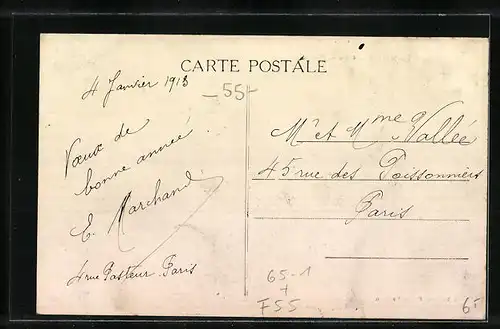 CARTE POSTALE
4 Janvier 1913
55
Vœux de
bonne année
E. Marchand
4 rue Pasteur. Paris
Mr et Mme Vallée
45 rue des Poissonniers
Paris
65-1
+
F55
65